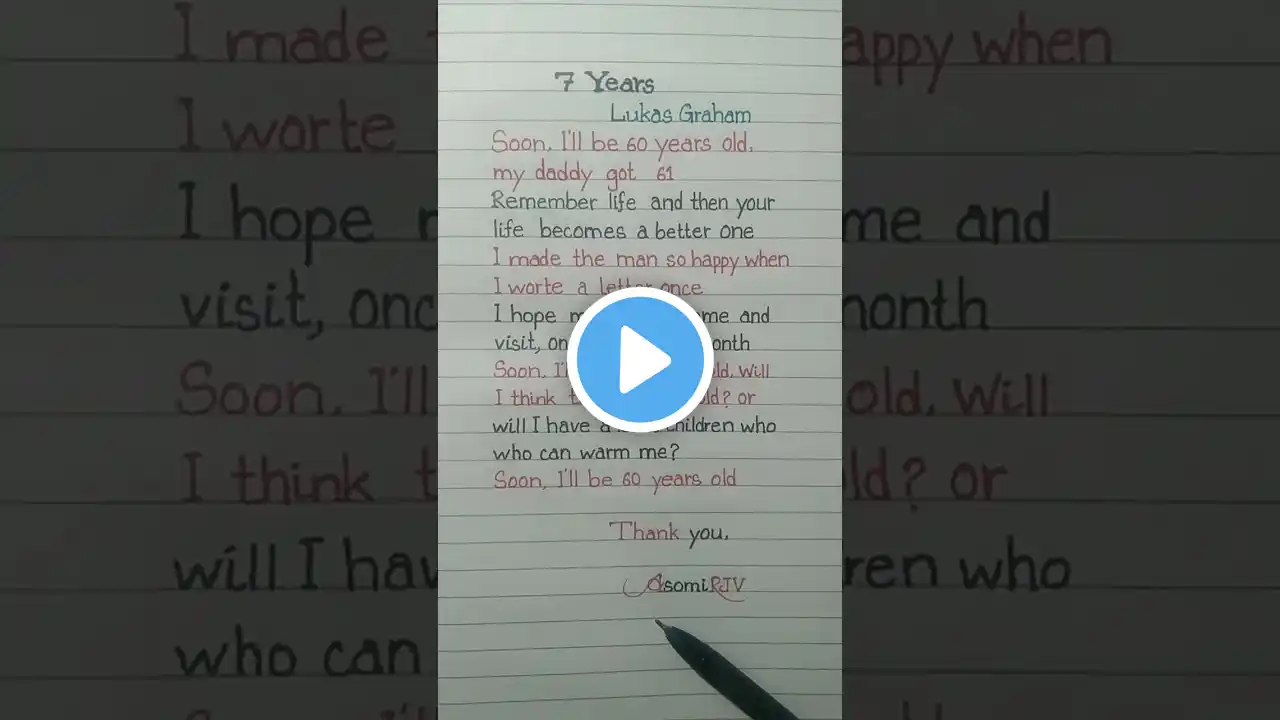 7 Years
Lukas Graham
Soon, I'll be 60 years old,
my daddy got 61
Remember life and then your
life becomes a better one
I made the man so happy when
I worte a letter once
I hope me and
visit,
Soon, will
I think or
will I have a children who
who can warm me?
Soon, I'll be 60 years old
Thank you.
AsomiRJV